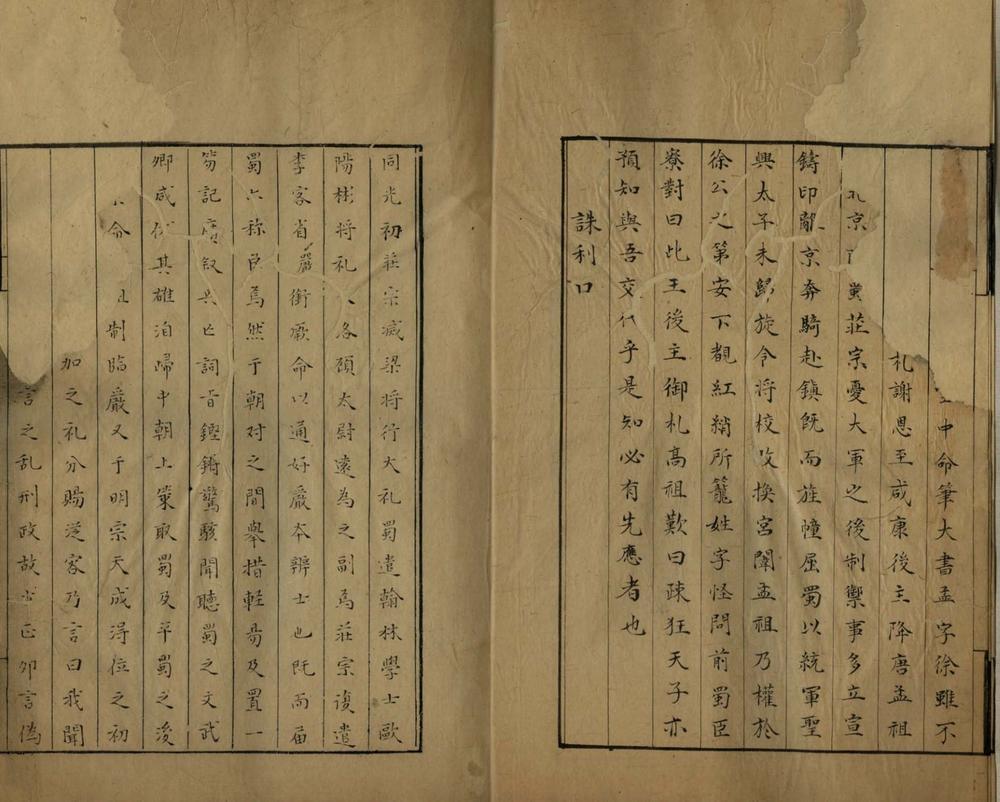 中命筆大書孟字徐雖不
札謝恩至咸康後主降唐孟祖
京 黨莊宗憂大軍之後制禦事多立宣
鑄印離京奔騎赴鎮旣而旌幢届蜀以統軍聖
興太子未歸旋令将校改換宮闈孟祖乃權於
徐公之第安下覩紅綃所籠姓字怪問前蜀臣
寮對曰此王後主御札高祖歎曰疎狂天子亦
預知與吾交代乎是知必有先應者也
誅利口
同光初莊宗滅梁将行大礼蜀遣翰林學士歐
陽彬将礼 名領太尉遠為之副焉莊宗復遣
李客省嚴銜厥命以通好嚴夲辨士也旣而届
蜀 称臣焉然于朝对之間舉措軽昜及置一
笏記廣叙 詞旨鏗鏘驚駭聞聽蜀之文武
卿咸伏其雄洎歸中朝上策取蜀及平蜀之後
命 制臨嚴又于明宗天成淂位之初
加之礼分賜従家乃言曰我聞
言之乱刑政故 正夘言偽